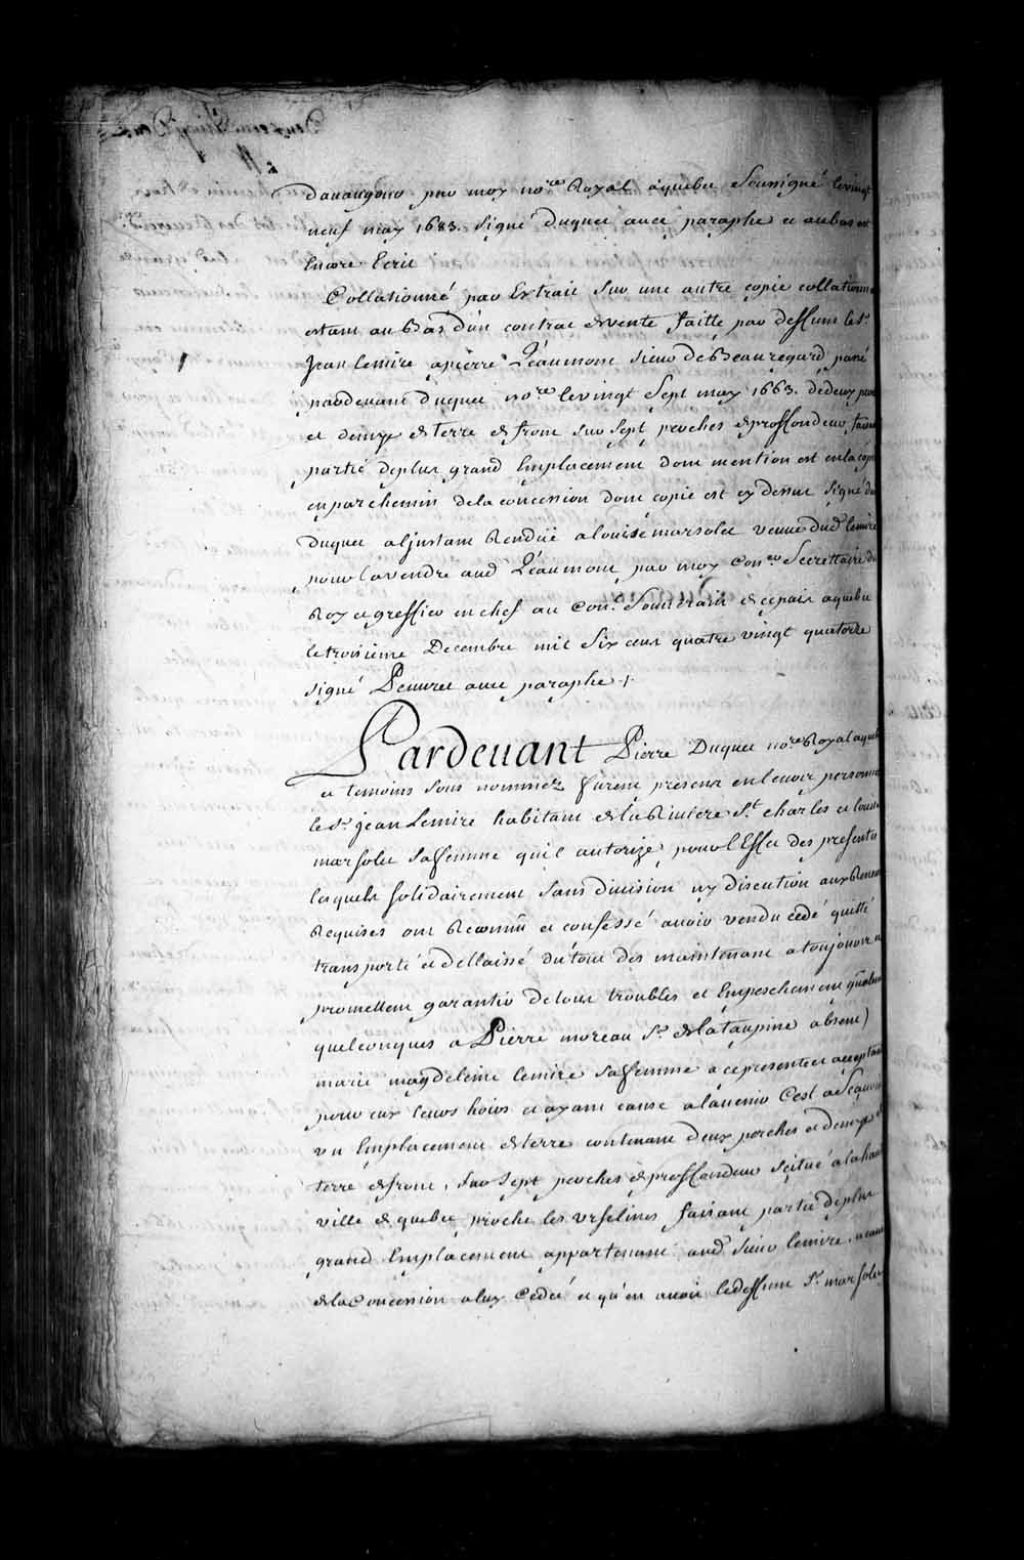 davaugour par moy no.re Royal aquebec soussigné levingt
neuf may 1683. signé Duquet avec paraphe et aubas est
Encore Ecrit
Collationné par Extrait sur une autre copie collationn
estant au bas d'un contrat devente faitte par deffunt les.r
Jean lemire apierre Léaumont sieur deBeauregard passé
pardevant duquet no.re levingt sept may 1663. dedeux per
et demye de terre de front sur sept perches deproffondeur faisant
partie deplus grand Emplacement dont mention est enlacopie
enparchemin dela concession dont copie est cy dessus signé du
Duquet aljnstant Rendüe alouise marsolet veuve dud lemire
pour lavendre aud Léaumont par moy Con.er Secrettaire du
Roy et greffier en chef au Con.l Souverain de cepais aquebec
letroisieme Decembre mil six cent quatre vingt quatorze
signé Peuvret avec paraphe /.
Pardevant Pierre Duquet no.re Royal aquebec
et temoins sous nommez furent presens enleurs personne
le s.r jean Lemire habitant de la Riviere S.t charles et louise
marsolet saffemme quil autorize pour l'Effet des presentes
lesquels solidairement sans division ny discution aux Renon
Requises ont Reconnu et confessé avoir vendu cedé quitté
transporté et dellaissé dutout des maintenant atoujours et
promettent garantir de tous troubles et Empeschemens
quelconques a Pierre moreau S.r de lataupine absent)
marie magdeleine lemire saffemme a cepresente et acceptant
pour eux leurs hoirs et ayant cause alavenir C'est ascavoir
un Emplacement deterre contenant deux perches et demye de
terre defront, sur sept perches deproffondeur scitué alahaute
ville de quebec proche les urselines faisant partie deplus
grand Emplacement appartenant aud sieur lemire acause
dela Concession aluy Cedée et qu'en avoit ledeffunt S.r marsolet